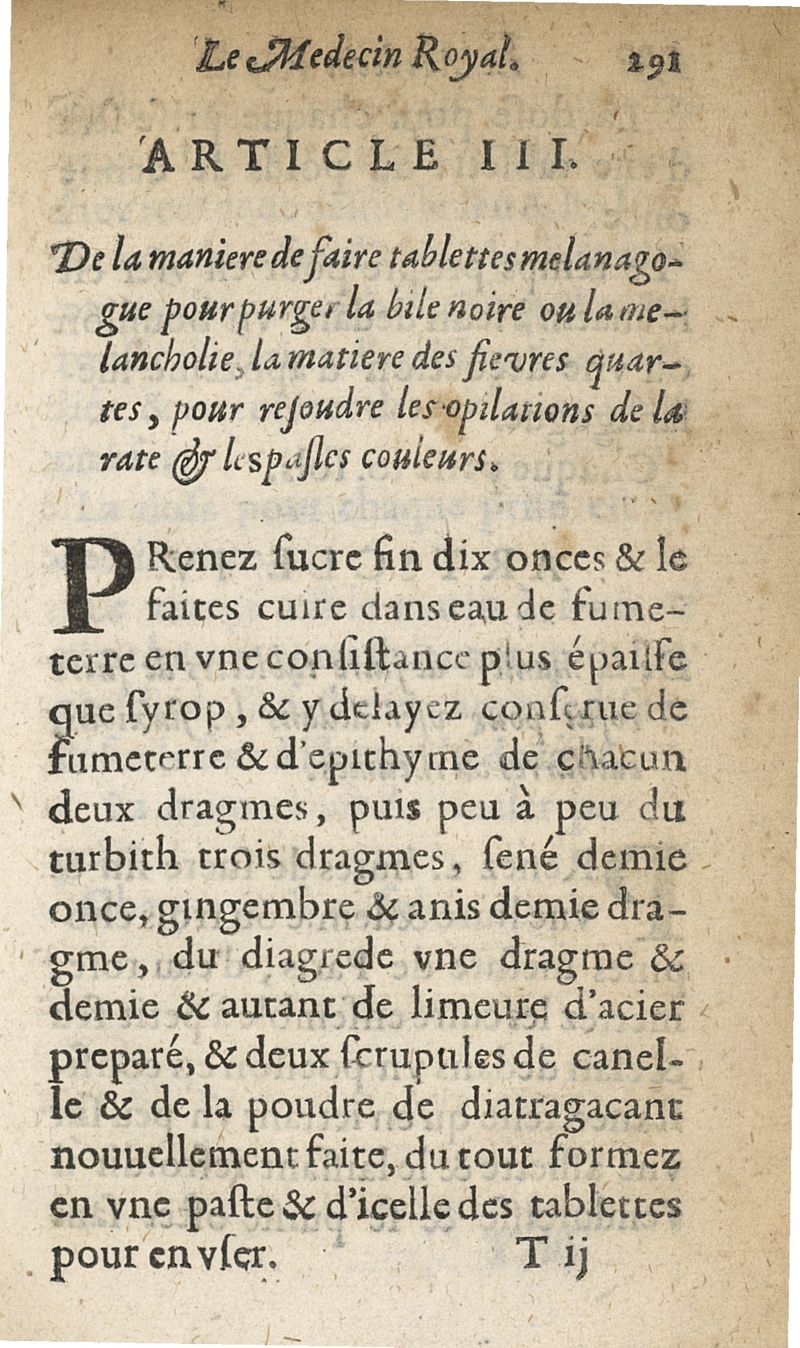 Le Medecin Royal. 291
ARTICLE III.
De la maniere de faire tablettes melanago-
gue pour purger la bile noire ou la me-
lancholie, la matiere des fievres quar-
tes, pour reſoudre les opilations de la
rate & les paſles couleurs.
PRenez ſucre fin dix onces & le
faites cuire dans eau de fume-
terre en vne conſiſtance plus épaiſſe
que ſyrop, & y delayez conſerue de
fumeterre & d'epithyme de chacun
deux dragmes, puis peu à peu du
turbith trois dragmes, ſené demie
once, gingembre & anis demie dra-
gme, du diagrede vne dragme &
demie & autant de limeure d'acier
preparé, & deux ſcrupules de canel-
le & de la poudre de diatragacant
nouuellement faite, du tout formez
en vne paſte & d'icelle des tablettes
pour en vſer. T ij